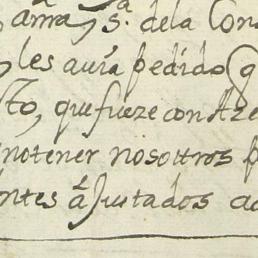 anna, s.ª dela Con
les auia pedido q
to, que fueze con Aze
notener nosottros p
ntes a ajustados ac